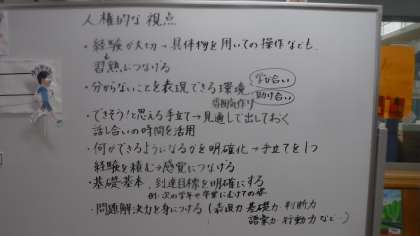 人権的な視点
・経験が大切→具体物を用いての操作なども
習熟につなげる
・分からないことを表現できる環境 学び合い
雰囲気作り 助け合い
・できそう!と思える手立て→見通しで出しておく
話し合いの時間を活用
・何ができるようになるかを明確化→手立てを1つ
経験を積む→感覚につなげる
・基礎・基本、到達目標を明確にする
例:次の学年や卒業にむけての姿
・問題解決力を身につける(表現力 基礎力 判断力
語彙力 行動力 など…)